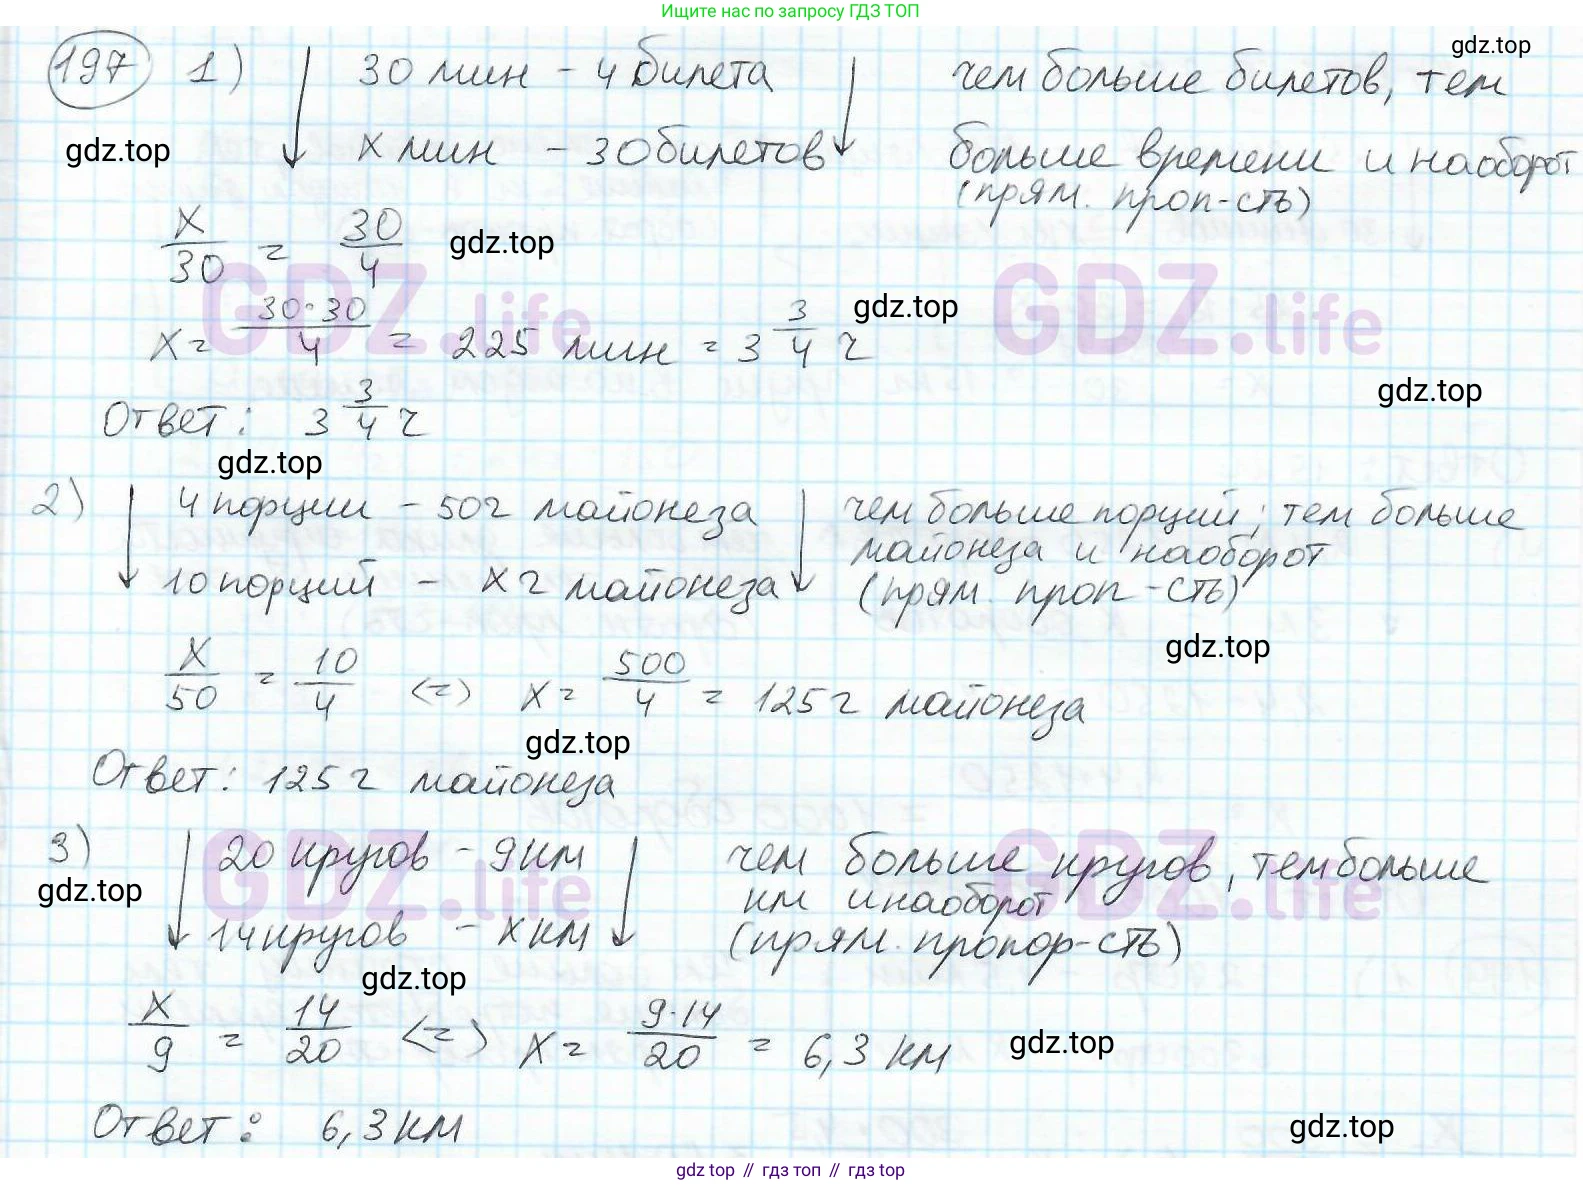 Ищите нас по запросу ГДЗ ТОП
gdz.top
197 1) 30 мин - 4 билета чем больше билетов, тем
gdz.top
x мин - 30 билетов больше времени и наоборот
(прям. проп-сть)
x/30 = 30/4
gdz.top
GDZ.life GDZ.life
x = 30·30/4 = 225 мин = 3 3/4 ч
gdz.top
gdz.top
Ответ: 3 3/4 ч
gdz.top
2) 4 порции - 50г майонеза чем больше порций, тем больше
майонеза и наоборот
10 порций - x г майонеза (прям. проп-сть)
gdz.top
x/50 = 10/4 <=> x = 500/4 = 125 г майонеза
gdz.top
Ответ: 125 г майонеза
3) 20 кругов - 9 км чем больше кругов, тем больше
gdz.top
GDZ.life GDZ.life
км и наоборот
14 кругов - x км (прям. пропор-сть)
gdz.top
x/9 = 14/20 <=> x = 9·14/20 = 6,3 км
gdz.top
Ответ: 6,3 км
gdz.top
gdz top // гдз топ // gdz top